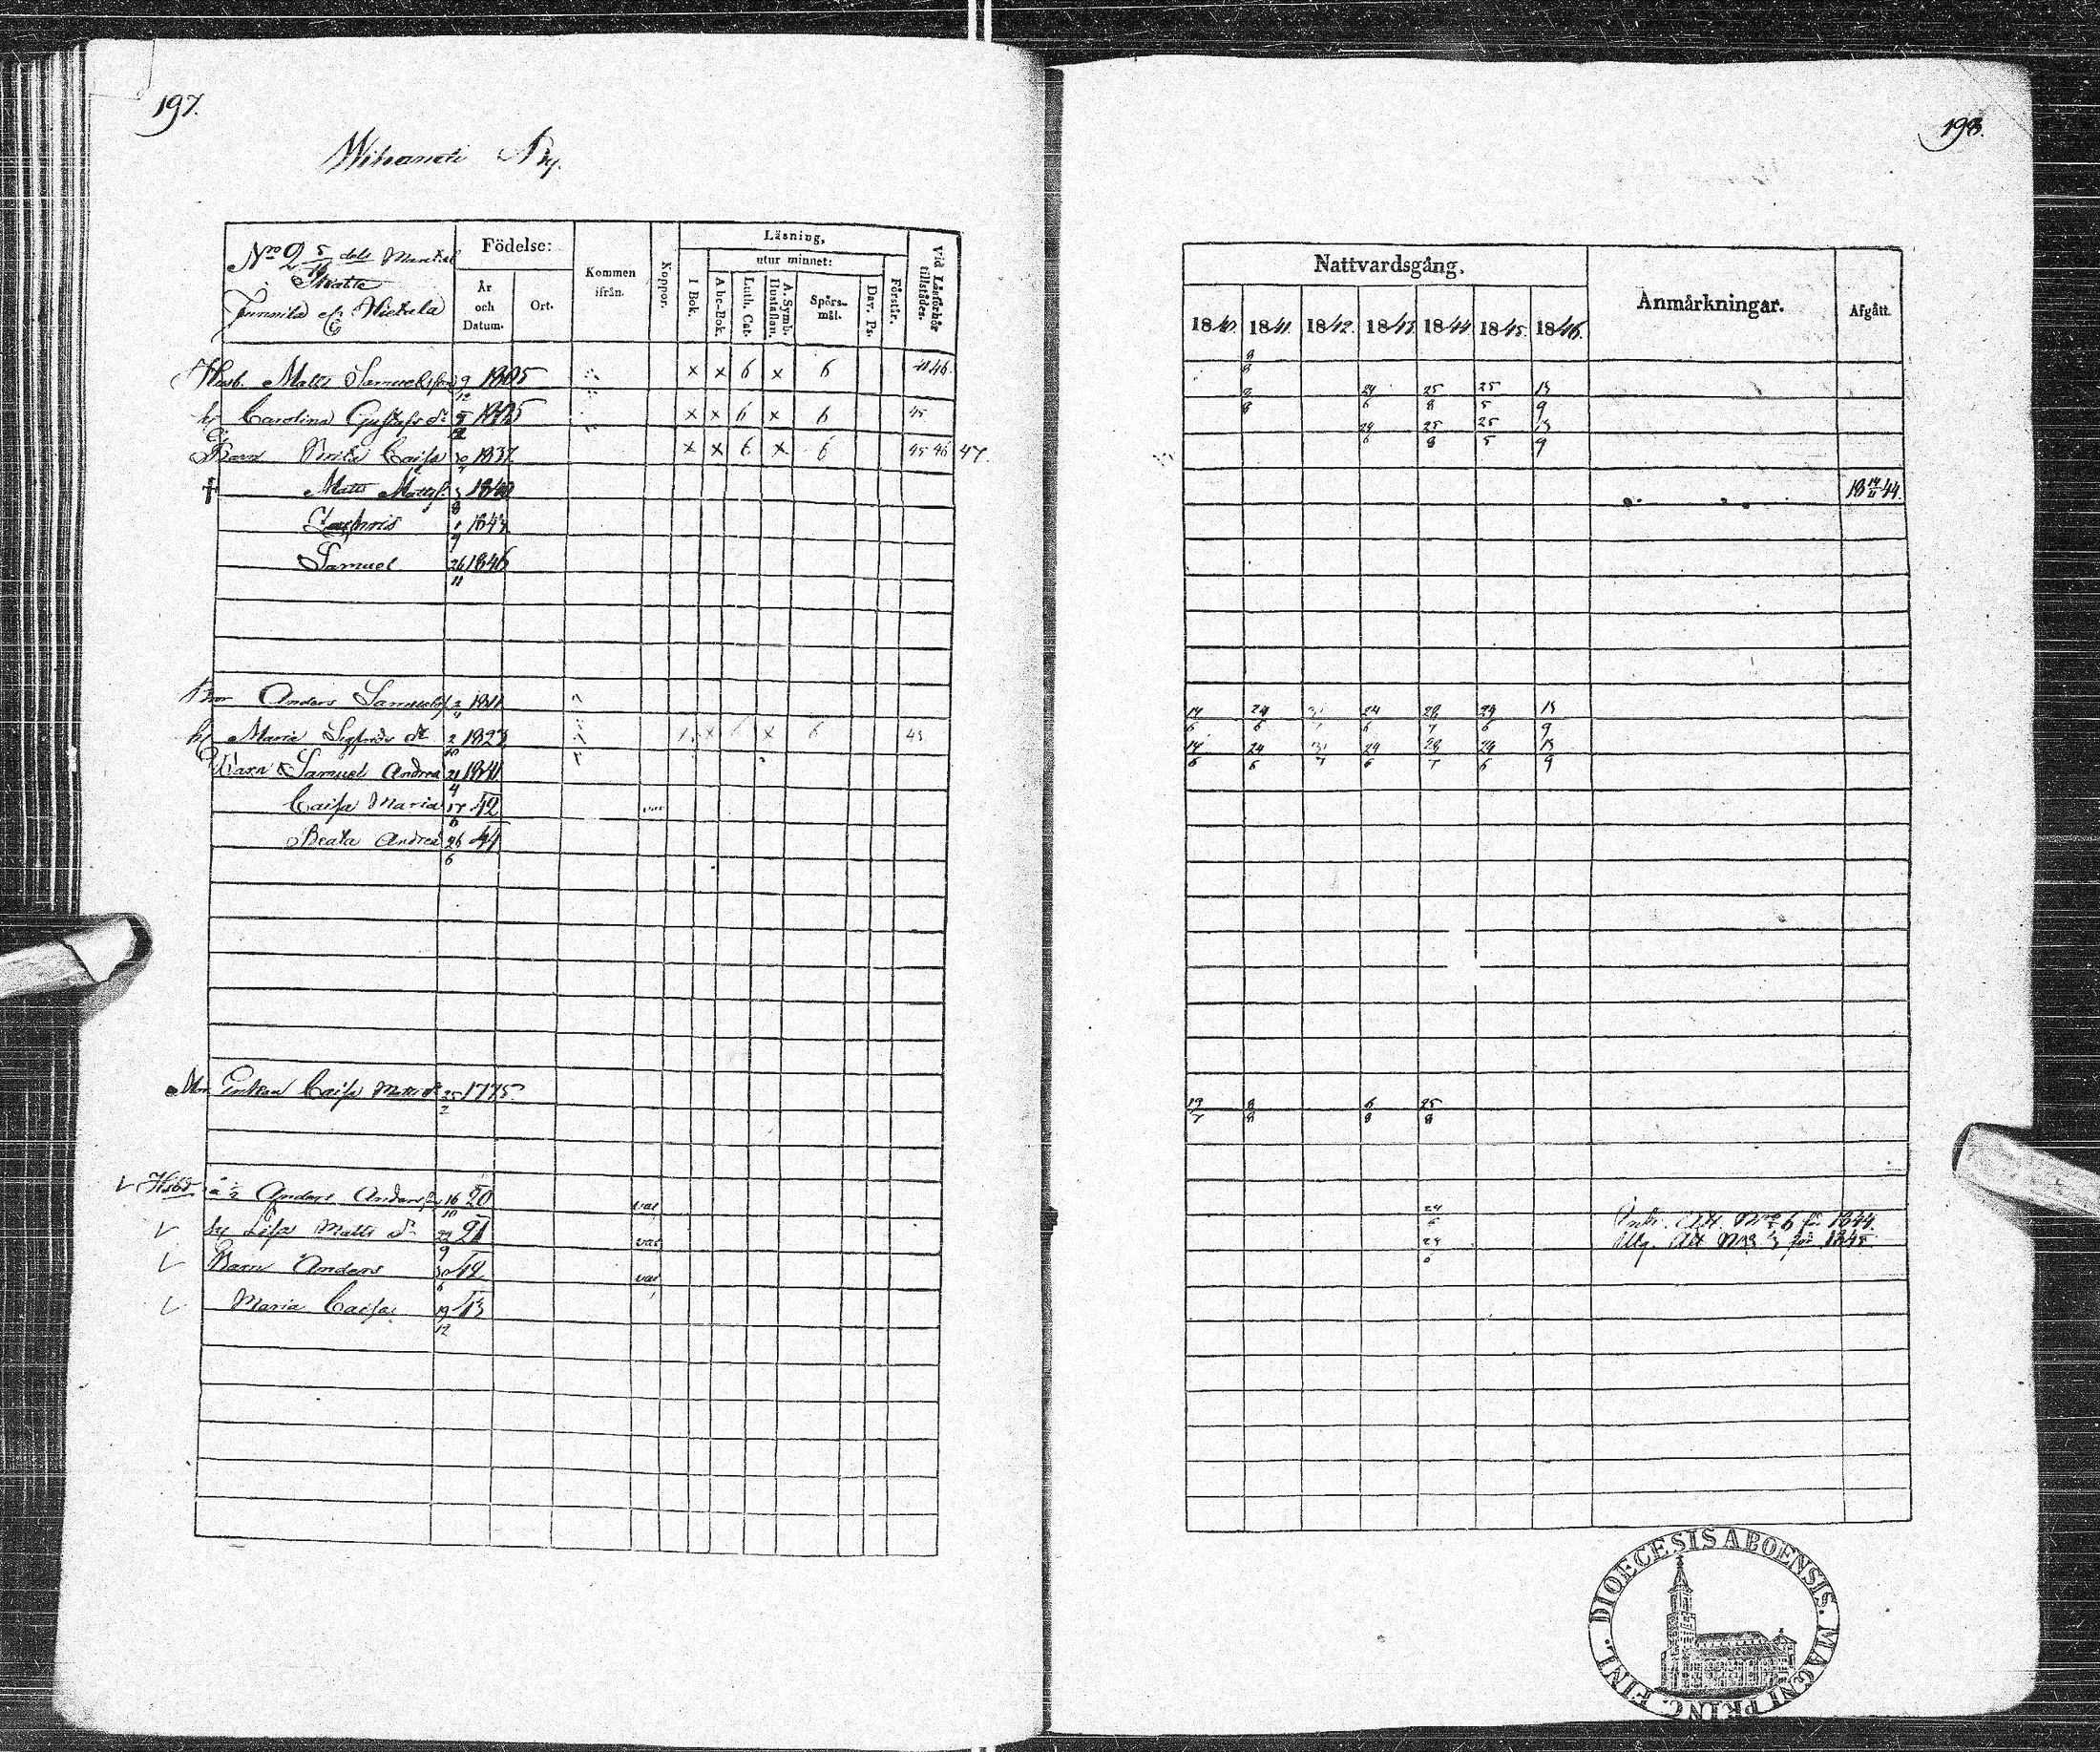 197.
198.
Wihanti By.
Nro 2 5/19 dels Mantal
Skatte
Junnila el. Hietala
Födelse:
År och Datum.
Ort.
Kommen ifrån.
Koppor.
Läsning,
I Bok.
utur minnet:
A bc-Bok.
Luth. Cat.
A. Symb. Hustaflan.
Spörs-mål.
Dav. Ps.
Förstår.
Vid Läsförhör tillstädes:
Nattvardsgång.
1840. 1841. 1842. 1843. 1844. 1845. 1846.
Anmärkningar.
Afgått.
Matts Samuelsson 9/12 1805 x x 6 x 6 46
8/8
h. Carolina Gustafs dr 1805 x x 6 x 6 45
8/8 24/6 25/8 25/5 13/9
Barn Brita Caisa 1837 x x 6 x 6 45 46 47.
24/6 25/8 25/5 13/9
† Matts Matts 1840 18 14/11 44.
1/9 1843
Samuel 26/11 1846
Bror Anders Samuels 1811
14/6 24/6 24/6 28/7 29/6 13/9
h. Maria Sigfrids dr 2/10 1823 x x x 6 45
14/6 24/6 29/6 28/7 29/6 13/9
Barn Samuel Andreas 21/4 1841
Caisa Maria 17/6 42 vac
Beata Andreas 26/6 44
Mor Enkan Caisa Matts dr 25/2 1775
19/7 8/8 6/8 25/8
Anders Andersson 16/10 20 vac
24/6 Ink. Att. No 6 för 1844.
hu Lisa Matts dr 21 vac
Utfl. Att No för 1845
Barn Anders 30/6 42 vac
Maria Caisa 19/12 43
DIOECESIS ABOENSIS. MAGNI PRINC. FINL.